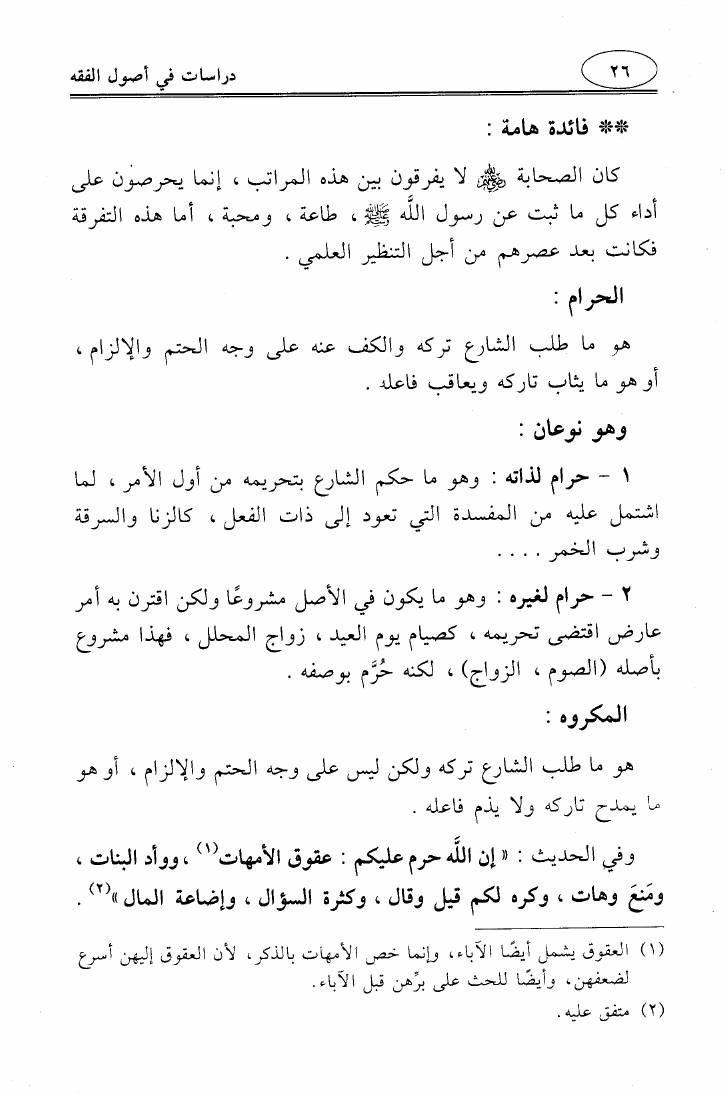 ٢٦ دراسات في أصول الفقه
** فائدة هامة :
كان الصحابة ﵃ لا يفرقون بين هذه المراتب ، إنما يحرصون على
أداء كل ما ثبت عن رسول اللَّه ﷺ ، طاعة ، ومحبة ، أما هذه التفرقة
فكانت بعد عصرهم من أجل التنظير العلمي .
الحرام :
هو ما طلب الشارع تركه والكف عنه على وجه الحتم والإلزام ،
أو هو ما يثاب تاركه ويعاقب فاعله .
وهو نوعان :
١ - حرام لذاته : وهو ما حكم الشارع بتحريمه من أول الأمر ، لما
اشتمل عليه من المفسدة التي تعود إلى ذات الفعل ، كالزنا والسرقة
وشرب الخمر . . . .
٢ - حرام لغيره : وهو ما يكون في الأصل مشروعًا ولكن اقترن به أمر
عارض اقتضى تحريمه ، كصيام يوم العيد ، زواج المحلل ، فهذا مشروع
بأصله (الصوم ، الزواج) ، لكنه حُرَّم بوصفه .
المكروه :
هو ما طلب الشارع تركه ولكن ليس على وجه الحتم والإلزام ، أو هو
ما يمدح تاركه ولا يذم فاعله .
وفي الحديث : « إن اللَّه حرم عليكم : عقوق الأمهات(١) ، ووأد البنات ،
ومَنعَ وهات ، وكره لكم قيل وقال ، وكثرة السؤال ، وإضاعة المال »(٢) .
(١) العقوق يشمل أيضًا الآباء، وإنما خص الأمهات بالذكر، لأن العقوق إليهن أسرع
لضعفهن، وأيضًا للحث على برِّهن قبل الآباء.
(٢) متفق عليه.